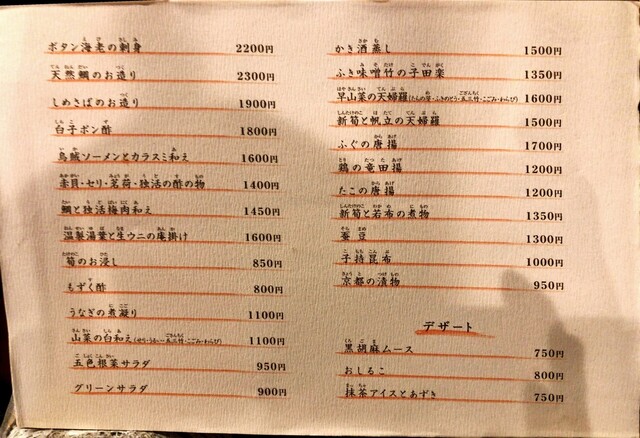 ボタン海老の刺身 2200円
天然鯛のお造り 2300円
しめさばのお造り 1900円
白子ポン酢 1800円
烏賊ソーメンとカラスミ和え 1600円
赤貝・セリ・茗荷・独活の酢の物 1400円
鯛と独活梅肉和え 1450円
温製湯葉と生ウニの庵掛け 1600円
筍のお浸し 850円
もずく酢 800円
うなぎの煮凝り 1100円
山菜の白和え(せり・うるい・五三竹・こごみ・わらび) 1100円
五色根菜サラダ 950円
グリーンサラダ 900円
かき酒蒸し 1500円
ふき味噌竹の子田楽 1350円
早山菜の天婦羅(たらの芽・ふきのとう・五三竹・こごみ・わらび) 1600円
新筍と帆立の天婦羅 1500円
ふぐの唐揚 1700円
鶏の竜田揚 1200円
たこの唐揚 1200円
新筍と若布の煮物 1350円
蚕豆 1300円
子持昆布 1000円
京都の漬物 950円
デザート
黒胡麻ムース 750円
おしるこ 800円
抹茶アイスとあずき 750円